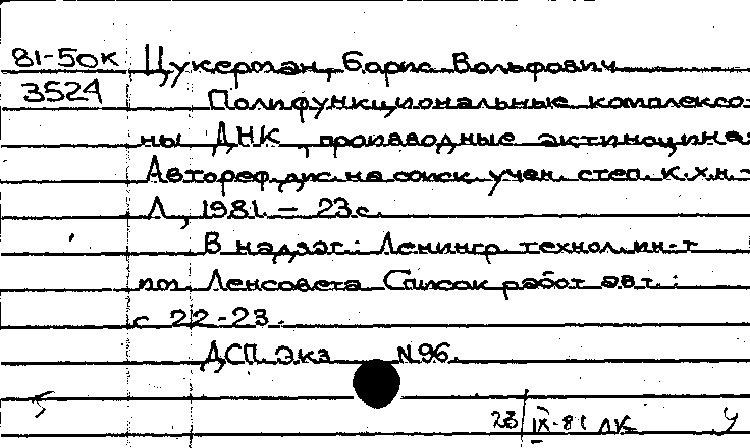 81-50к Цукерман, Борис Вольфович
3524 Полифункциональные комплексо-
ны ДНК, производные актиноцина:
Автореф. дис. на соиск. учен. степ. к.х.н. -
Л., 1981. - 23 с.
В надзаг.: Ленингр. технол. ин-т
им. Ленсовета. Список работ авт.:
с. 22-23.
ДСП. Экз. N96.
23/IX-81 ЛК